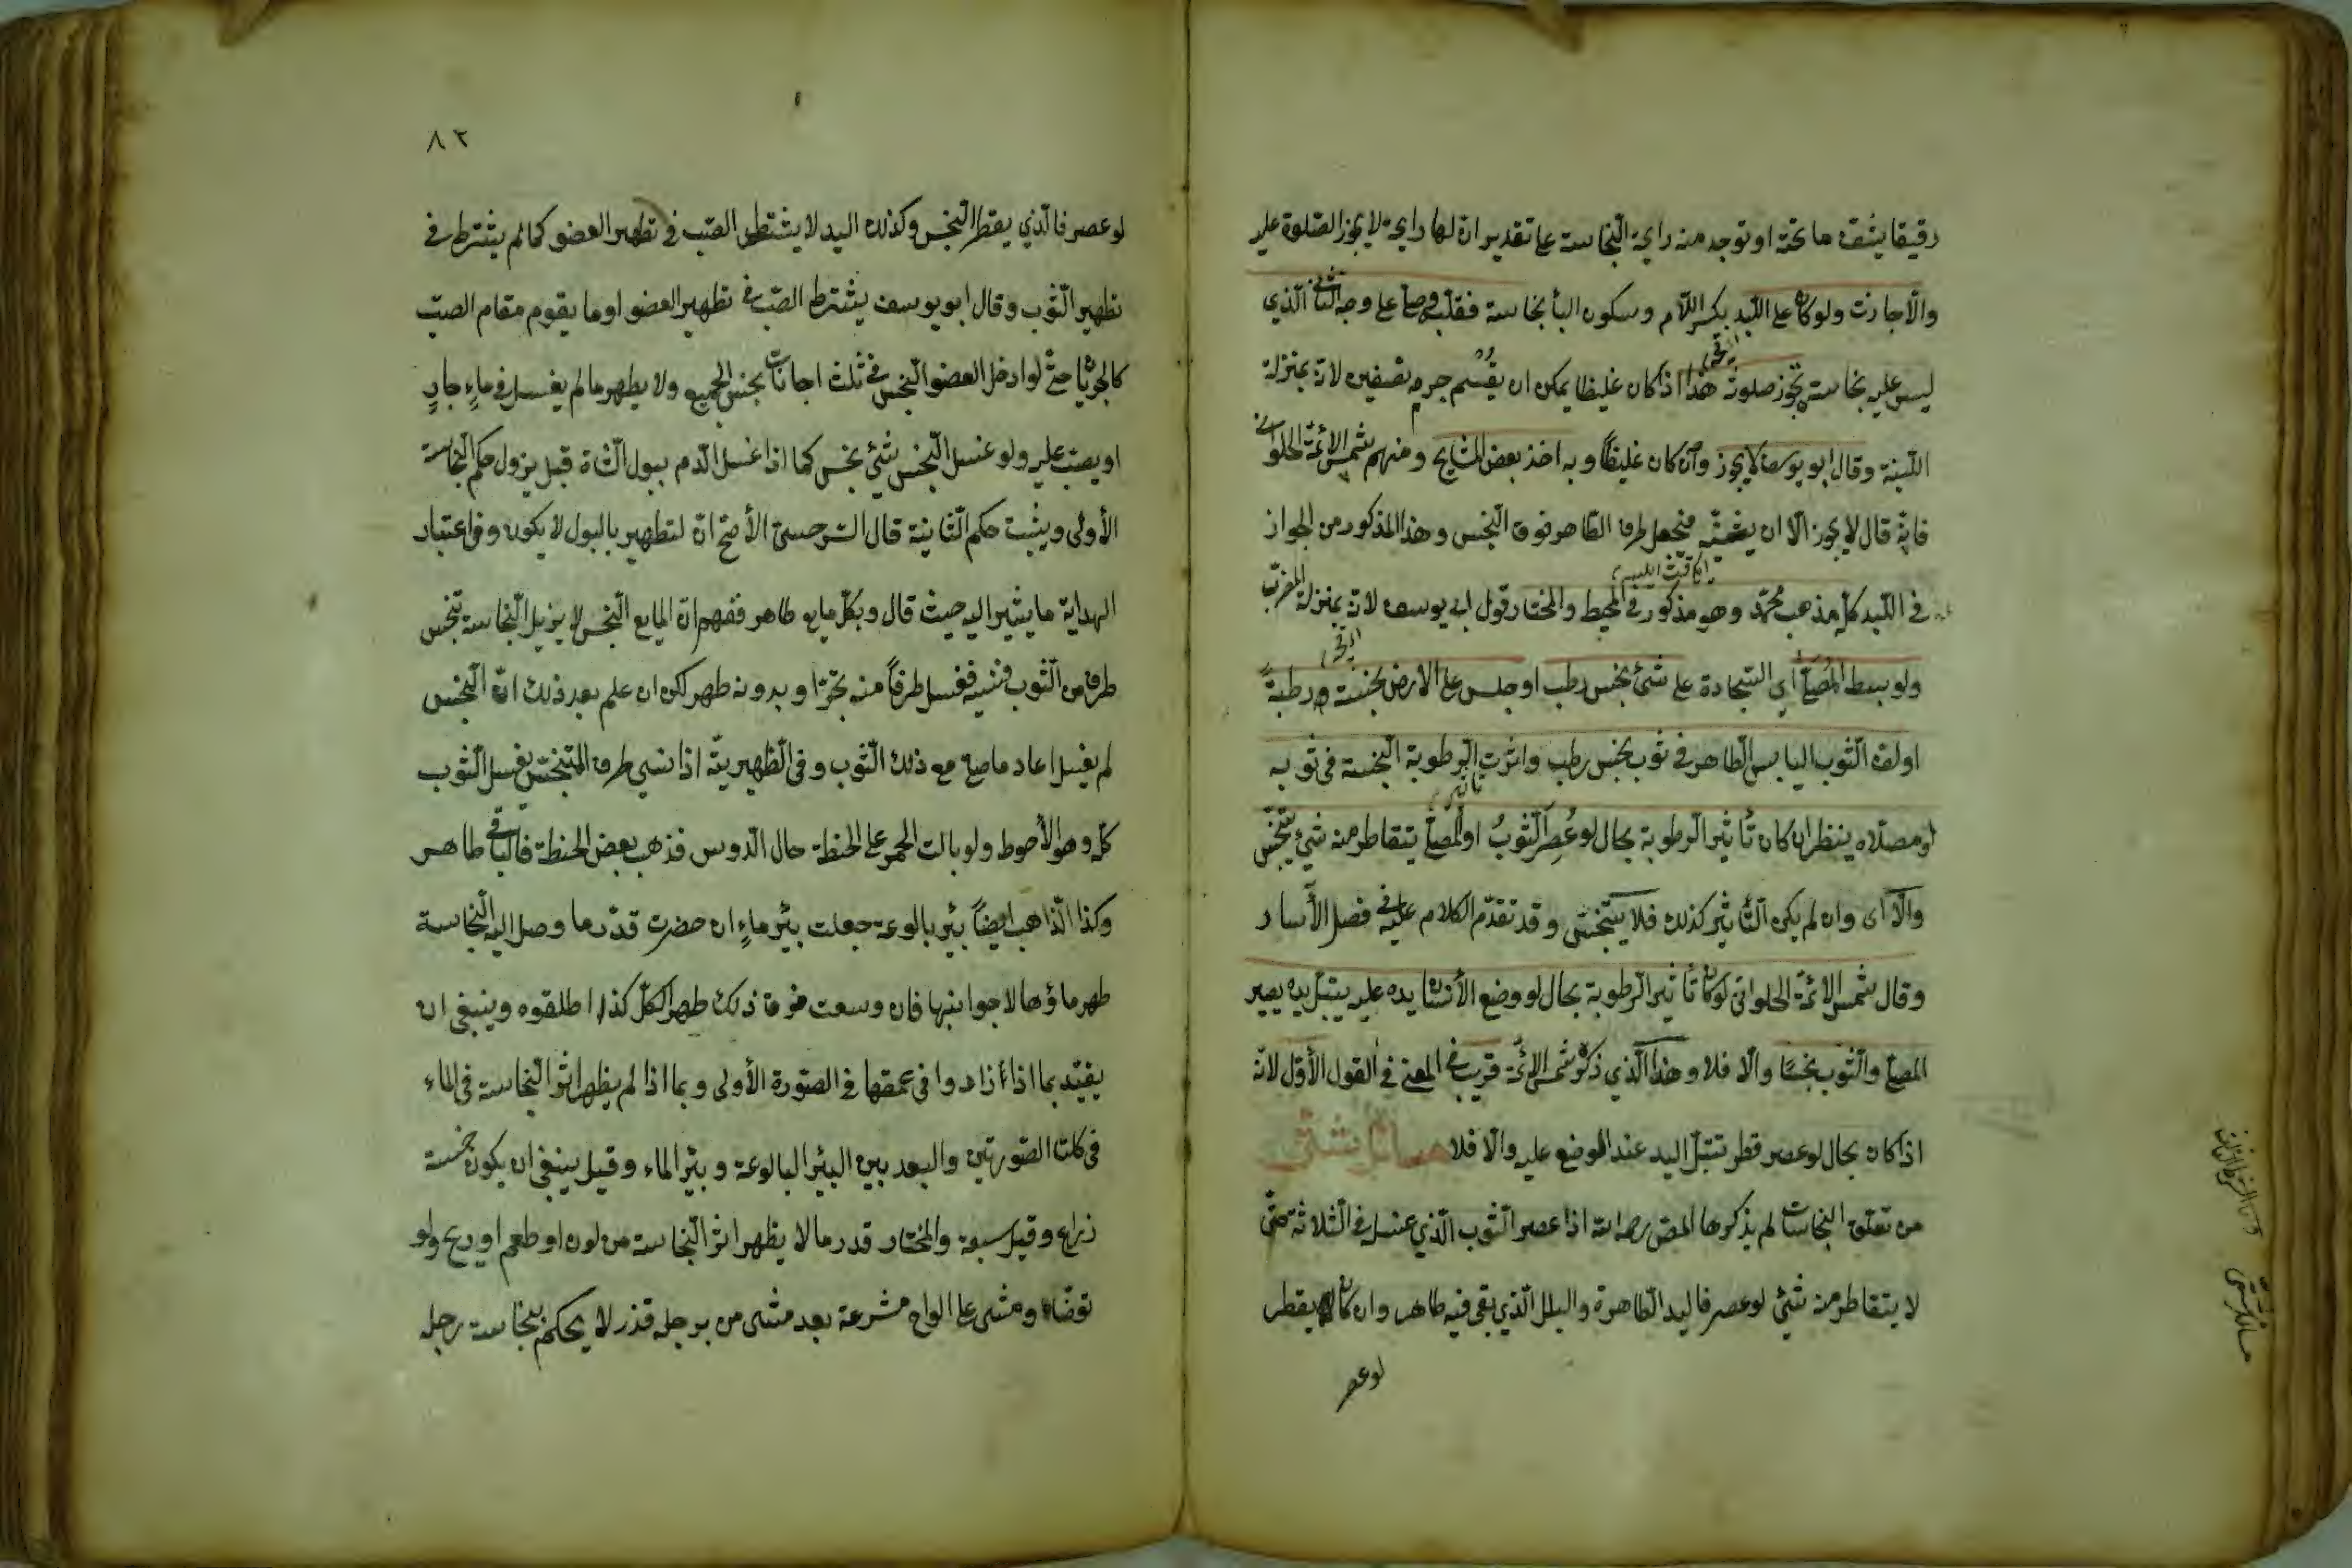 رقيقا يشف ما تحته او توجد منه رايحة النجاسة على تقدير ان لها رايحة لا يجوز الصلوة عليه
والّا جازت ولو كان على اللبد بكسر اللام وسكون البأ نجاسة فقلبه وصلى على وجه الثاني الذي
ليس عليه نجاسة تجوز صلوته هذا اذا كان غليظا يمكن ان يقسم جرمه نصفين لانه بمنزلة
اللبنة وقال ابو يوسف لا يجوز وان كان غليظاً وبه اخذ بعض المشايخ ومنهم شمس الائمة الحلواني
فانه قال لا يجوز الّا ان يثنيه فيجعل طرف الطاهر فوق النجس وهذا المذكور من الجواز
في اللبد كله مذهب محمد وهو مذكور في المحيط والمختار قول ابي يوسف لانه بمنزلة المضرب
ولو بسط المُصلّى اي السّجادة على شئ نجس رطب او جلس على الارض نجسة ورطبة
او لف الثوب اليابس الطاهر في ثوب نجس رطب واثرت الرطوبة النجسة في ثوبه
او مصلاه ينظر ان كان تأثير الرطوبة بحال لو عُصِر الثوبُ او المصلّى يتقاطر منه شئ يتنجس
والّا اى وان لم يكن التأثير كذلك فلا يتنجس وقد تقدّم الكلام عليه في فصل الأسار
وقال شمس الائمة الحلواني لو كان تأثير الرطوبة بحال لو وضع الأنسان يده عليه يبتل يده يصير
المصلّى والثوب نجسًا والّا فلا وهذا الذي ذكره شمس الائمة قريب في المعنى في القول الأوّل لانّه
اذا كان بحال لو عصر قطر تبتلّ اليد عند الوضع عليه والّا فلا مسائل شتّى
من تعلق النجاسات لم يذكرها المص رحمه الله اذا عصر الثوب الذي غسل في الثلاثة حتى
لا يتقاطر منه شئ لو عصر فاليد الطاهرة والبلل الذي بقى فيه طاهر وان كان يقطر
لو عصر
مسائل شتى
٨٢
لو عصر فالذي يقطر النجس وكذلك اليد لا يشترط الصب في تطهير العضو كما لم يشترط في
تطهير الثوب وقال ابو يوسف يشترط الصبّ في تطهير العضو او ما يقوم مقام الصبّ
كالجريان حتى لو ادخل العضو النجس في ثلث اجانات نجس الجميع ولا يطهر ما لم يغسل في ماءٍ جارٍ
او يصب عليه ولو غسل النجس بشئ نجس كما اذا غسل الدم ببول الشاة قيل يزول حكم النجاسة
الأولى ويثبت حكم الثانية قال السرخسى الأصح انّ التطهير بالبول لا يكون وفي اعتبار
الهداية ما يشير اليه حيث قال وبكل مايع طاهر ففهم انّ المايع النجس لا يزيل النجاسة تنجس
طرف من الثوب فنسيه فغسل طرفاً منه بتحرّ او بدونه طهر لكن ان علم بعد ذلك انّ النجس
لم يغسل اعاد ما صلى مع ذلك الثوب وفي الظهيريّة اذا نسي طرف المتنجس يغسل الثوب
كلّه وهو الأحوط ولو بالت الحمر على الحنطة حال الدوس فذهب بعض الحنطة فالباقي طاهر
وكذا الذاهب ايضاً بئر بالوعة جعلت بئر ماءٍ ان حضرت قدر ما وصل اليه النجاسة
طهر ماؤها لا جوانبها فان وسعت فوق ذلك طهر الكلّ كذا اطلقوه وينبغي ان
يقيّد بما اذا زادوا في عمقها في الصورة الأولى وبما اذا لم يظهر اثر النجاسة في الماء
في كلتا الصورتين والبعد بين البئر البالوعة وبئر الماء وقيل ينبغى ان يكون خمسة
زراع وقيل سبعة والمختار قدر ما لا يظهر اثر النجاسة من لون او طعم او ريح ولو
توضاء ومشى على الواح مشرعة بعد مشى من برجله قذر لا يحكم بنجاسة رجله